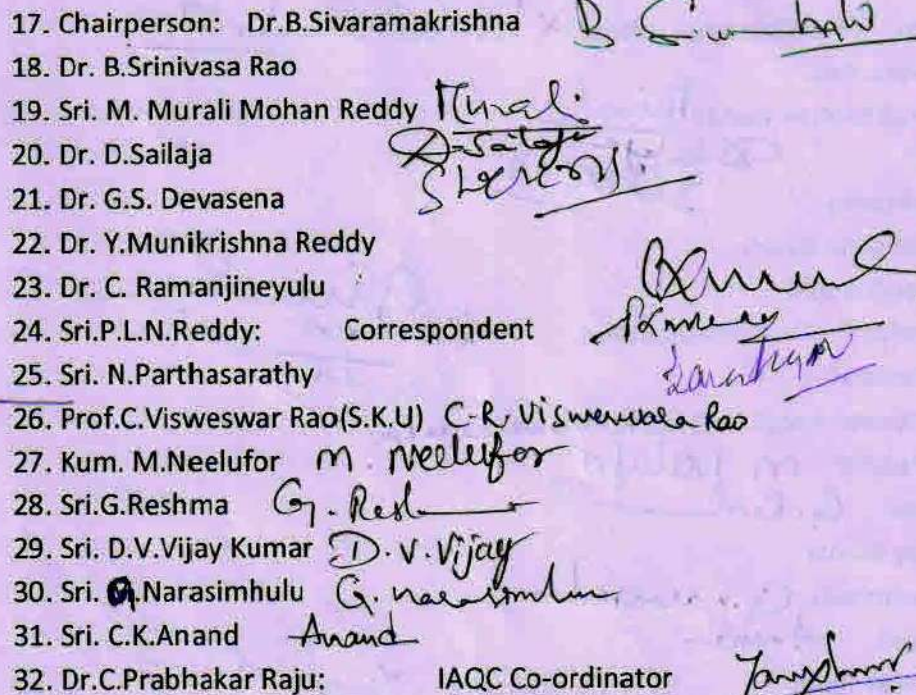 17. Chairperson: Dr.B.Sivaramakrishna
18. Dr. B.Srinivasa Rao
19. Sri. M. Murali Mohan Reddy Murali
20. Dr. D.Sailaja D.Sailaja
21. Dr. G.S. Devasena
22. Dr. Y.Munikrishna Reddy
23. Dr. C. Ramanjineyulu
24. Sri.P.L.N.Reddy: Correspondent
25. Sri. N.Parthasarathy
26. Prof.C.Visweswar Rao(S.K.U) C.R. Visweswara Rao
27. Kum. M.Neelufor M Neelufor
28. Sri.G.Reshma G.
29. Sri. D.V.Vijay Kumar D.V.Vijay
30. Sri. G.Narasimhulu G. narasimhulu
31. Sri. C.K.Anand Anand
32. Dr.C.Prabhakar Raju: IAQC Co-ordinator